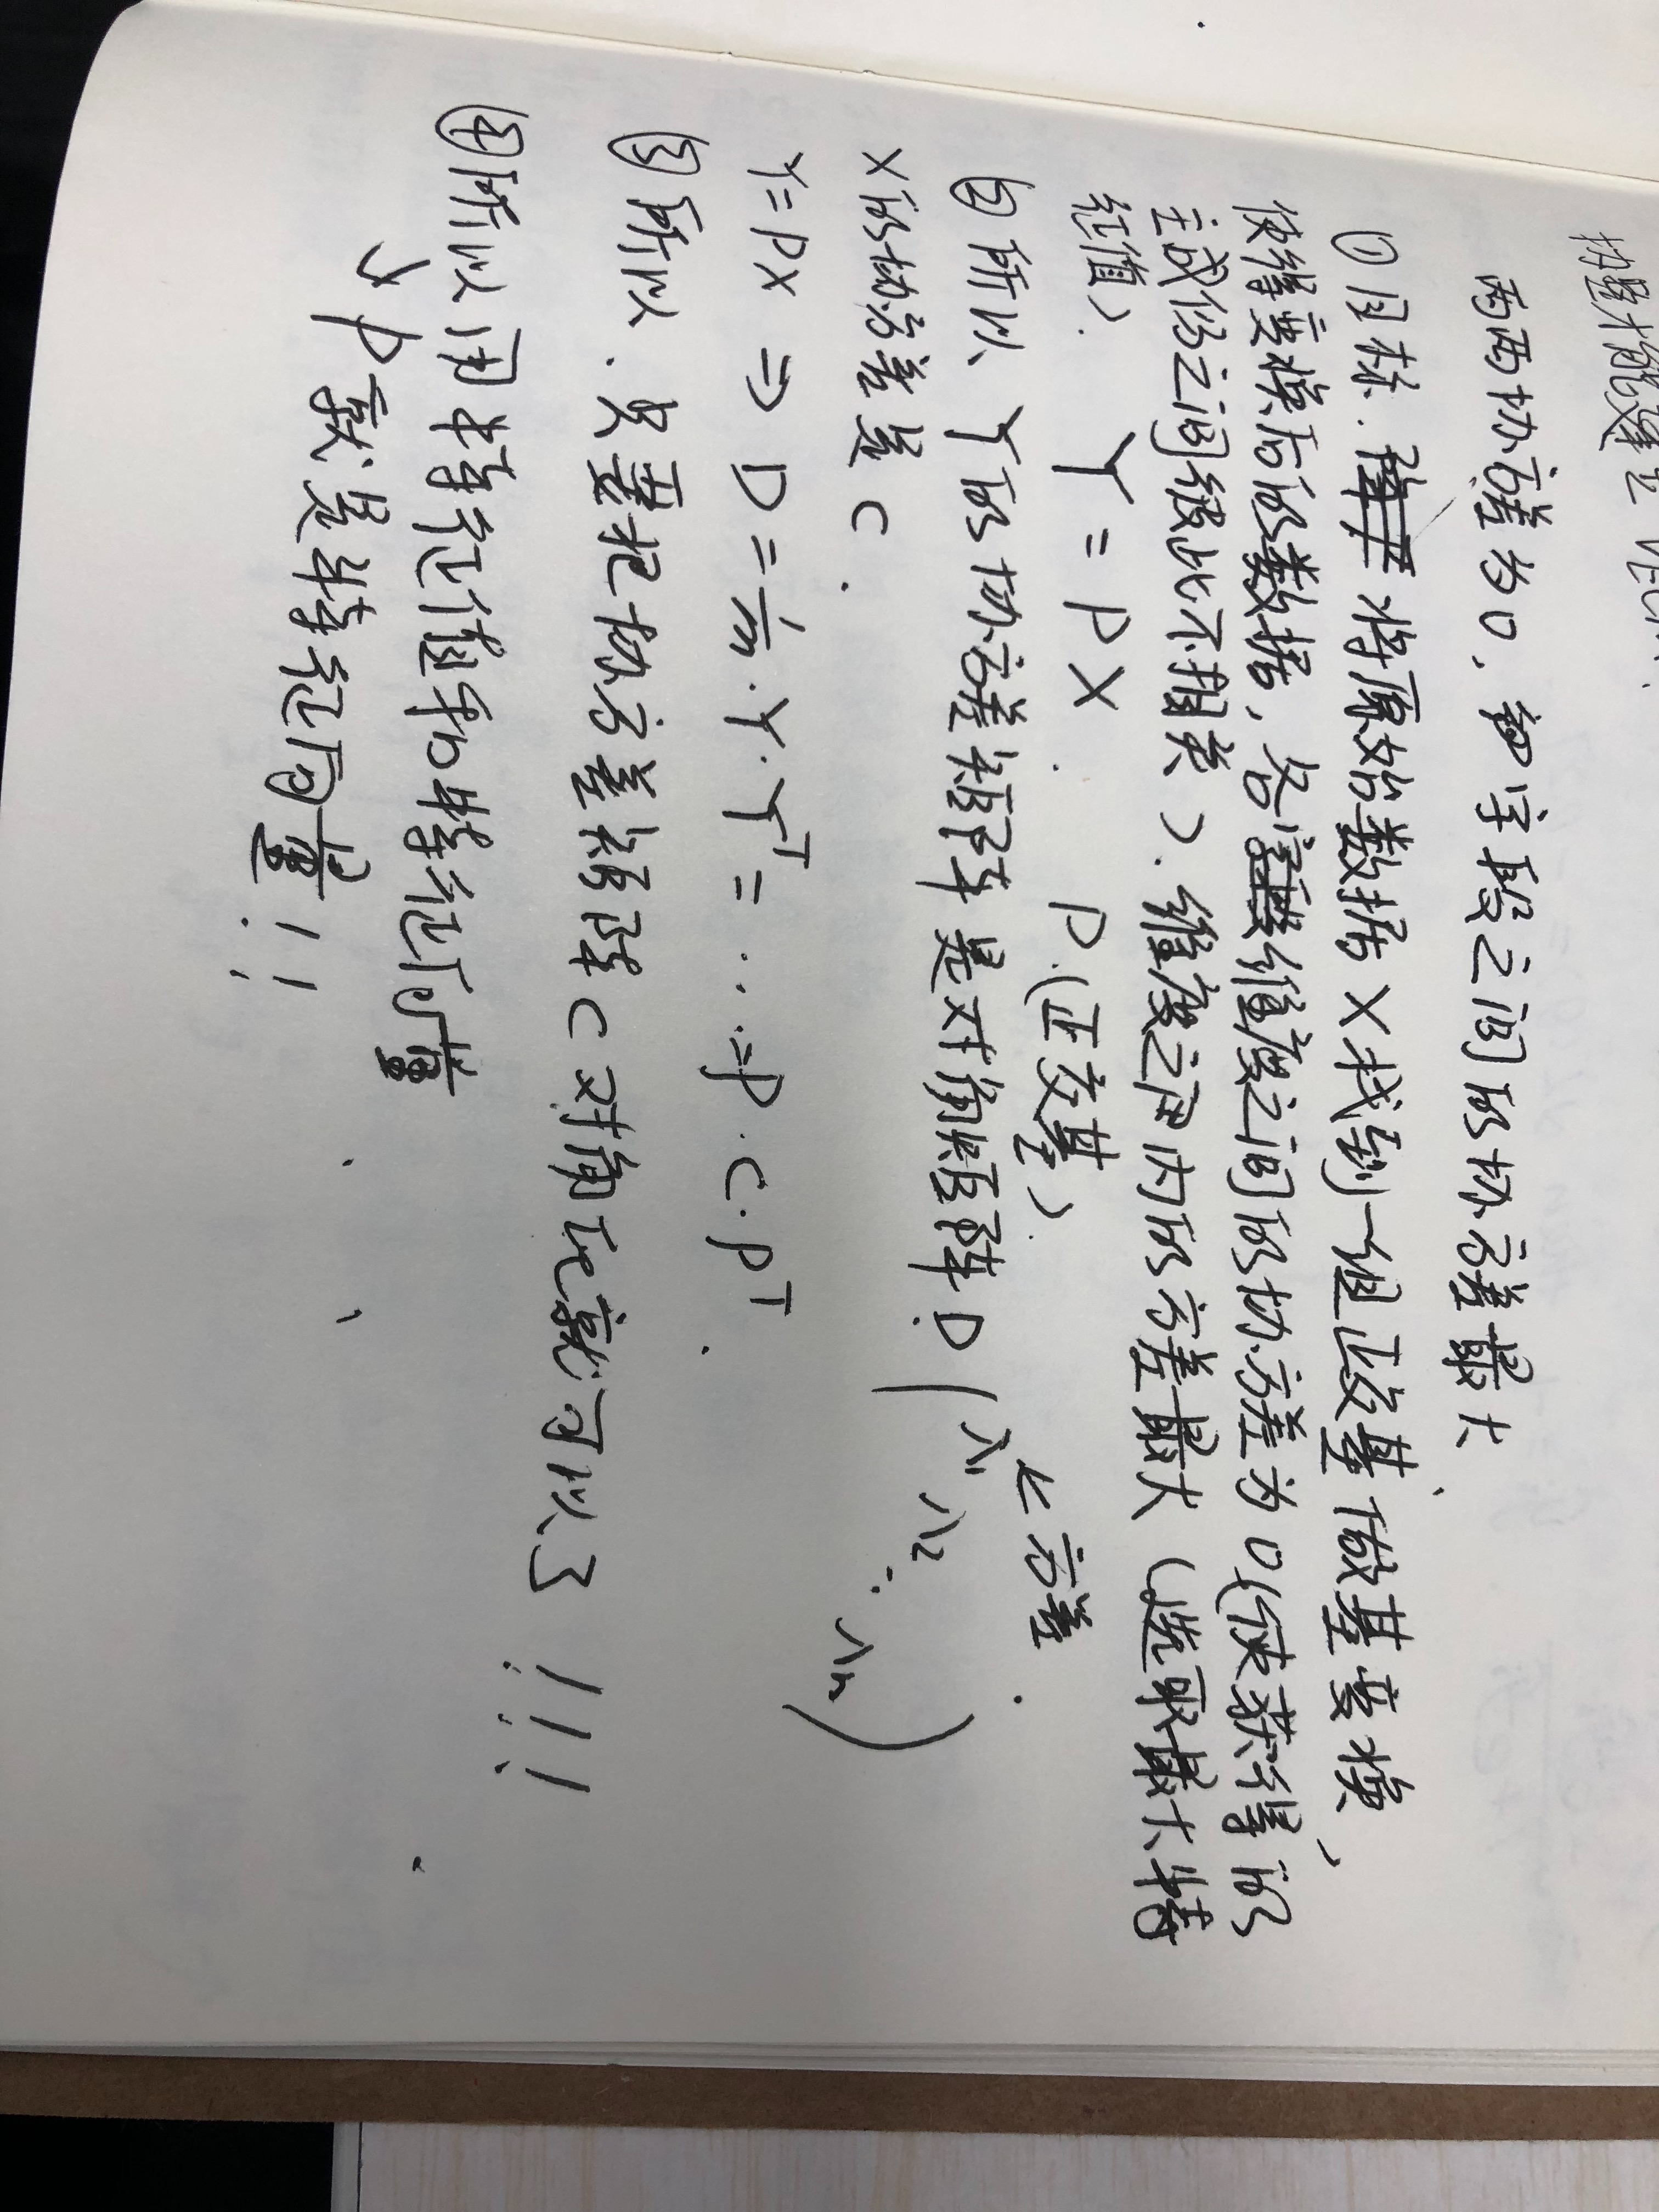 两两协方差为0,每字段之间的协方差最大
①目标.将原始数据X找到一组正交基做基变换,
使得变换后的数据,各维度之间的协方差为0(使获得的
主成份之间彼此不相关),维度之内的方差最大(选取最大特
征值).
Y=PX. P.(正交基).
②所以Y的协方差矩阵是对角矩阵D(λ1 λ2 ⋱ λn) ←方差.
X的协方差是C.
Y=PX ⇒ D=1/m·Y·Y^T=...=P·C·P^T.
③所以.只要把协方差矩阵C对角化就可以了!!!
④所以用特征值和特征向量
↳P就是特征向量!!